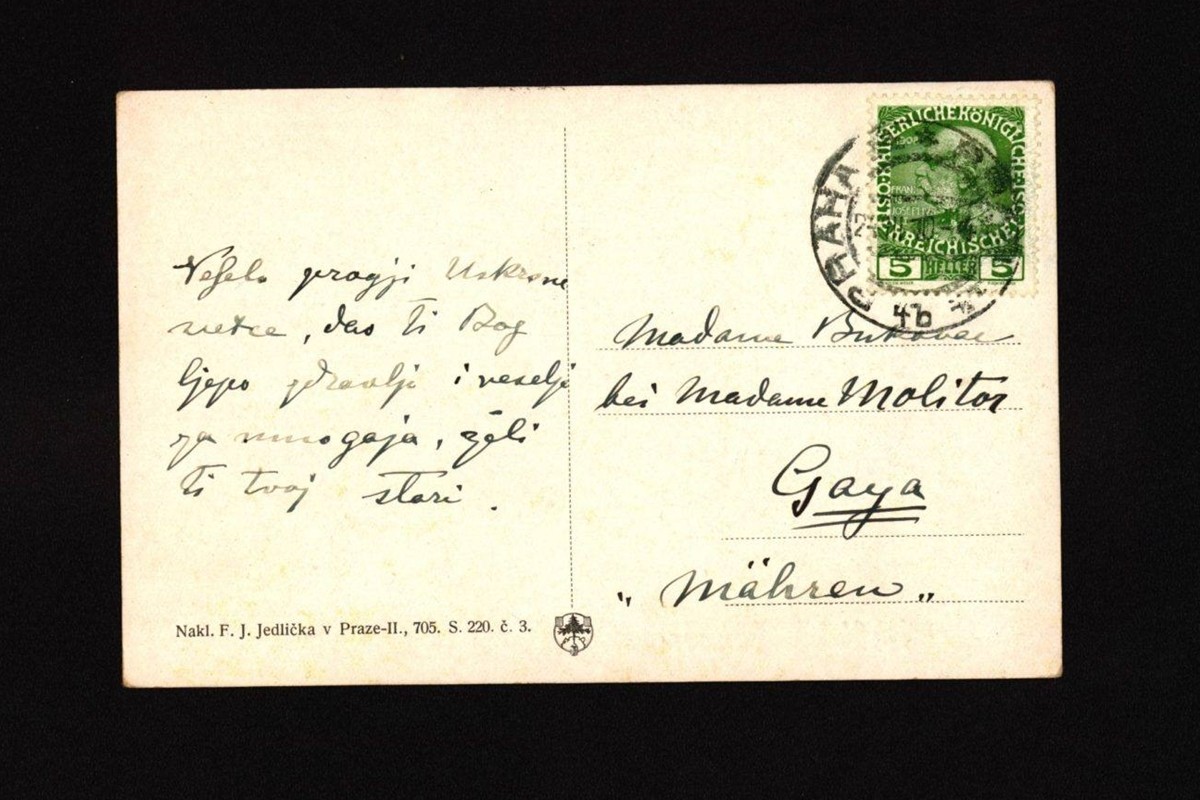 Veselo progji Uskrsne
svetce, dao ti Bog
ljepo zdravlje i veselje
za mnogaja, želi
ti tvoj stari.
Nakl. F. J. Jedlička v Praze-II., 705. S. 220. č. 3.
KAISERLICHE KÖNIGLICHE
ÖSTERREICHISCHE
5 HELLER 5
PRAHA
4b
Madame Bukovac
bei Madame Molitor
Gaya
„ Mähren „